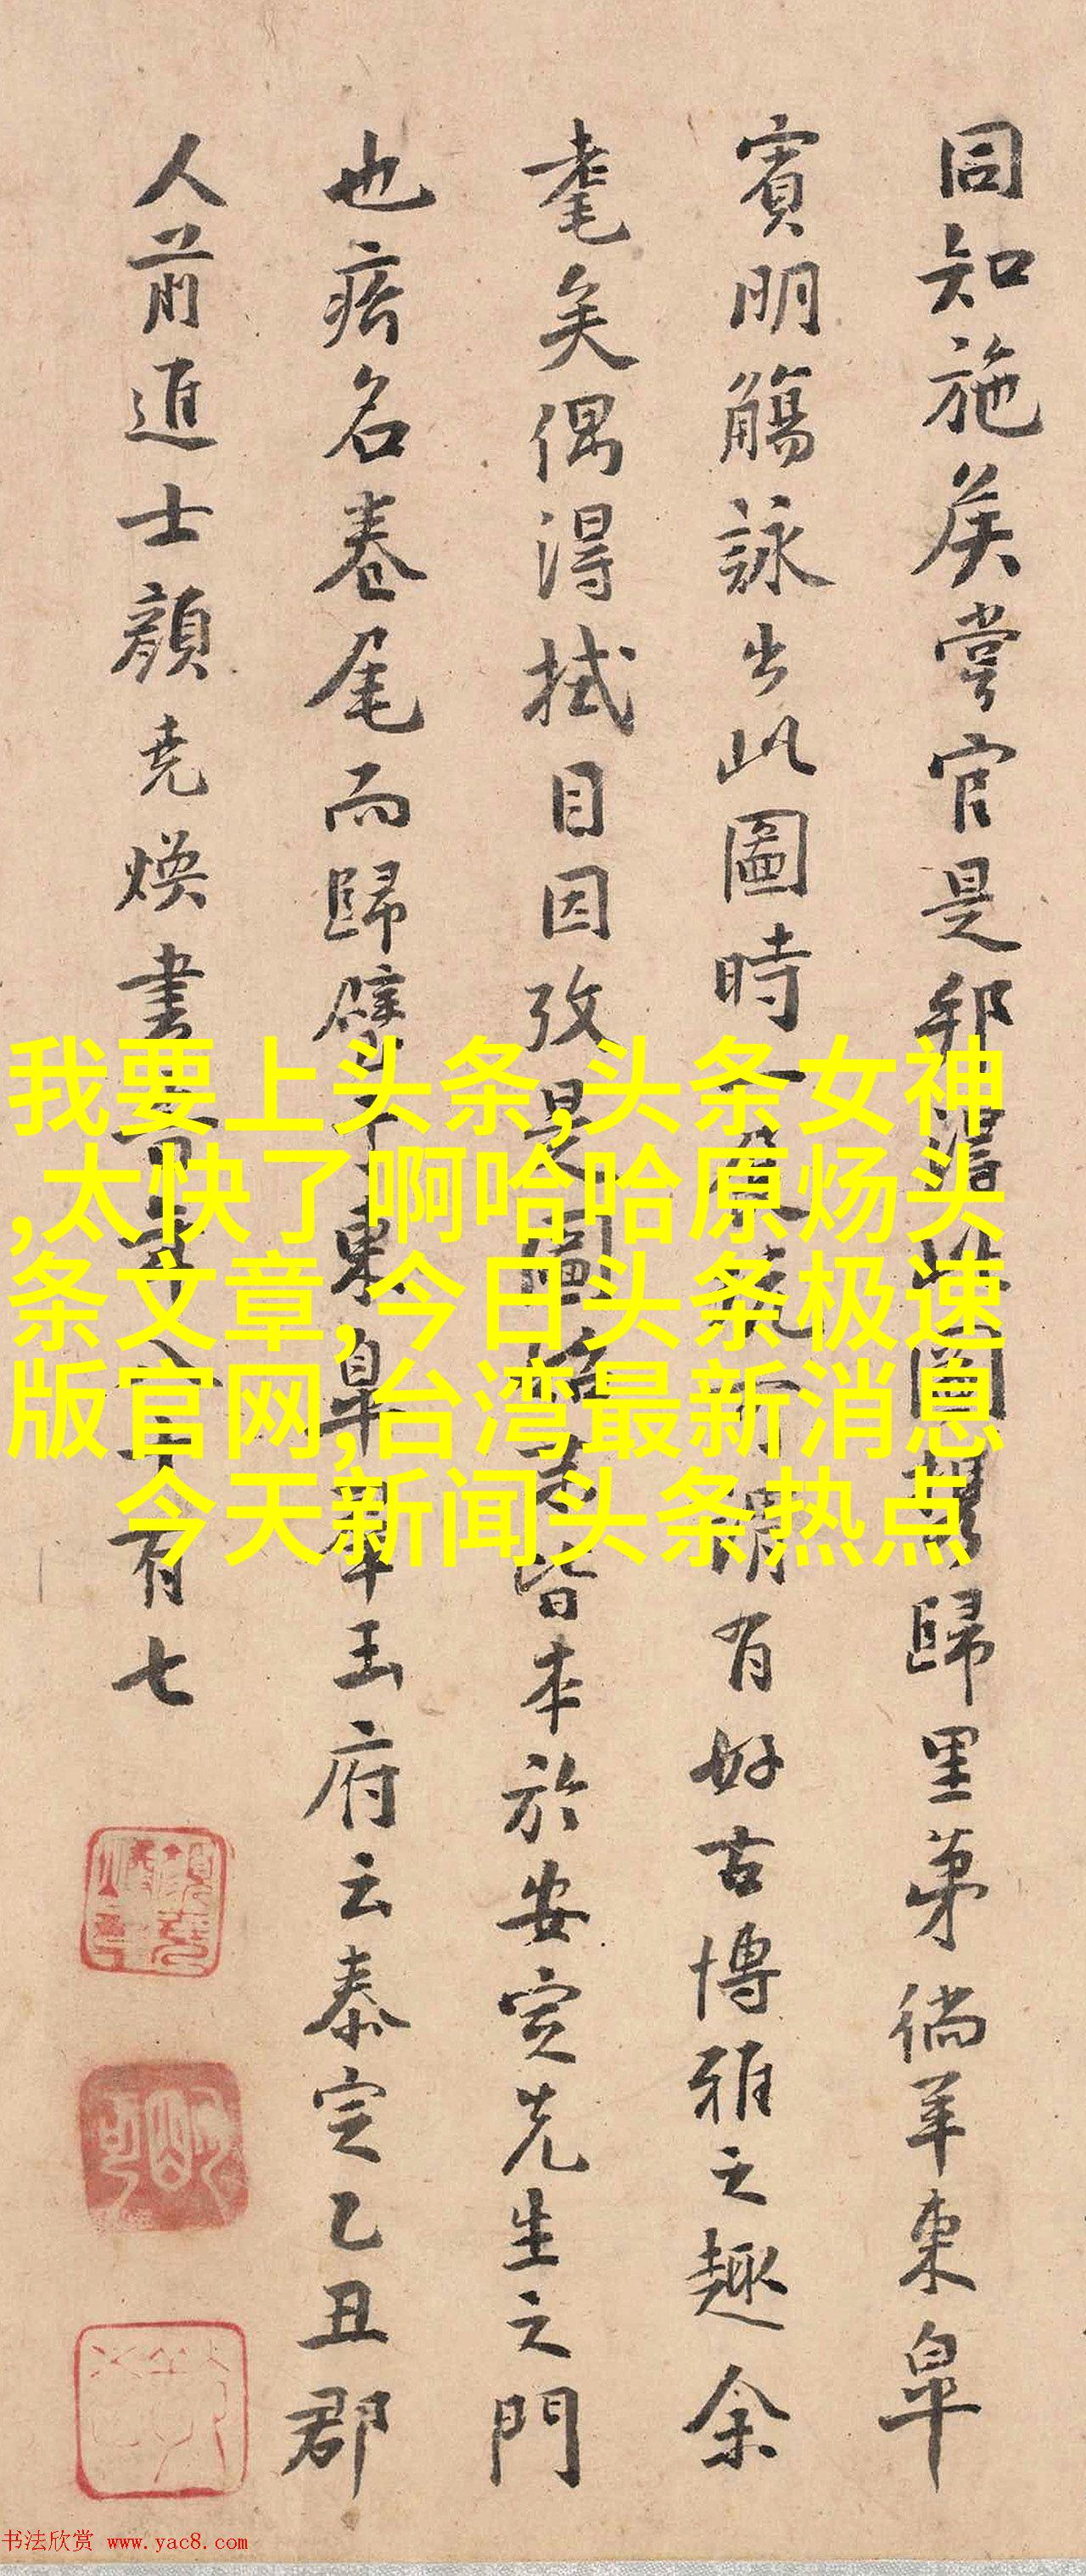 同知施矦嘗官是邦得此圖攜歸里第徜羊東皐
賓明觴詠出此圖時一展玩可謂有好古博雅之趣余
耄矣偶得拭目因攷是圖皆本於安定先生之門
也㾗名卷尾而歸擘東皐草玉府云泰定乙丑郡
人前進士顏堯煥書有七
我要上头条,头条女神
,太快了啊哈哈原炀头
条文章,今日头条极速
版官网,台湾最新消息
今天新闻头条热点
书法欣赏 www.yac8.com